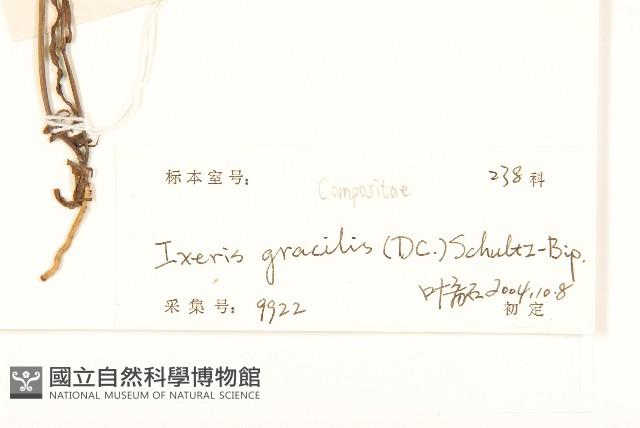 标本室号：
Compositae
238 科
Ixeris gracilis (DC.) Schultz-Bip.
采集号： 9922
2004.10.8
初定
國立自然科學博物館
NATIONAL MUSEUM OF NATURAL SCIENCE